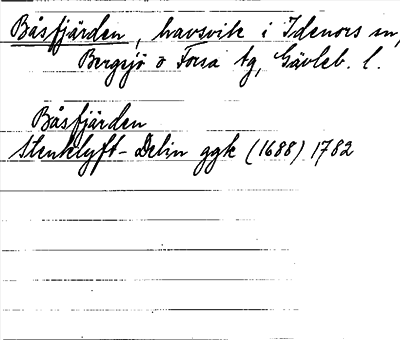 Båsfjärden, havsvik i Idenors sn,
Bergsjö o Forsa tg, Gävleb. l.
Båsfjärden
Stenklyft-Delin ggk (1688) 1782